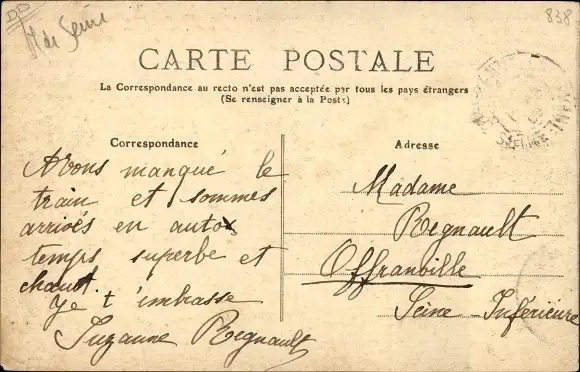 838
de Seine
CARTE POSTALE
La Correspondance au recto n'est pas acceptée par tous les pays étrangers
(Se renseigner à la Poste)
Correspondance
Avons manqué le
train et sommes
arrivés en auto
temps superbe et
chaud.
Je t'embrasse
Suzanne Regnault
Adresse
Madame
Regnault
Offranville
Seine-Inférieure